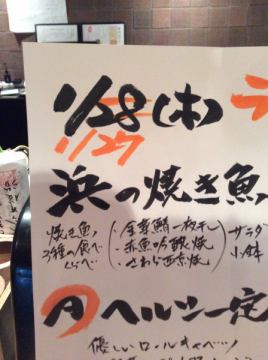 1/28(木) ラ
1/27
浜の焼き魚
焼き魚 3種の食べくらべ
・金華鯖一枚干し
・赤魚吟醸焼
・さわら西京焼
サラダ
小鉢
ヘルシー定
優しいロールキャベツ